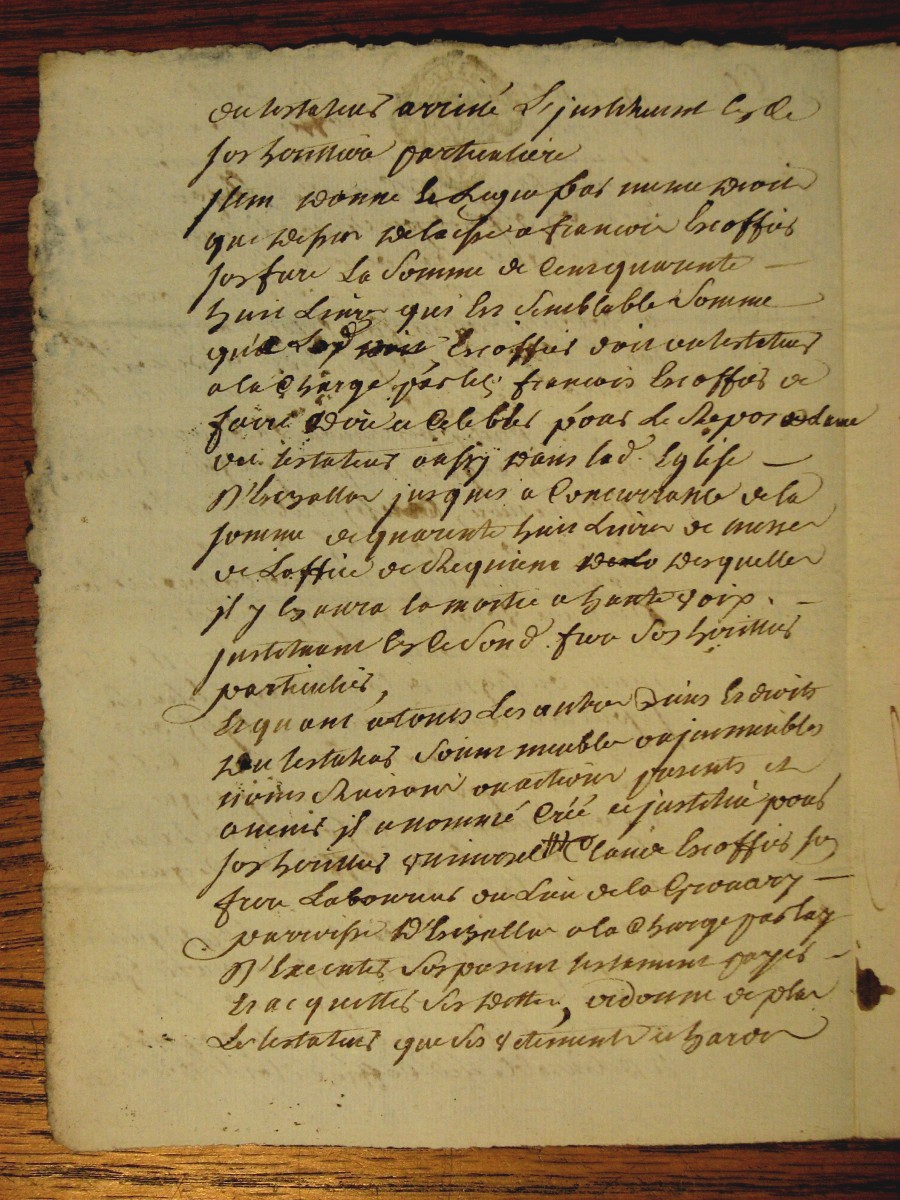 du testateur arrivé L'jnstituant Et de
son heritiere particuliere
Jtem donne Et Legue par meme droit
que dessus delaisse a francois Escoffier
son frere La Somme de Cent quarente
huit Livres qui Est Semblable Somme
que Led. Escoffier doit au testateur
a la Charge par led. francois Escoffier de
faire dire et Celebrer pour Le Repos de Lame
du testateur aussy dans lad. Eglise
jusques a Concurrance de la
somme de quarente huit Livres de messes
de Loffice de Requiem desquelles
il y En aura la moitie a haute voix.
jnstituant Led. Second. frere Son heritier
particulier,
Et quant a touts Les autres Biens Et droits
du testateur Soient meubles ou jmmeubles
noms Raisons ou actions presents et
avenir jl a nommé Créé et jnstitué pour
son heritier universel Claude Escoffier son
frere Laboureur du Lieu de la
parroisse a la Charge par luy
D'Executer Son present testament payer
Et acquitter Ses dettes, ordonne de plus
Le testateur que Ses vétements et hardes